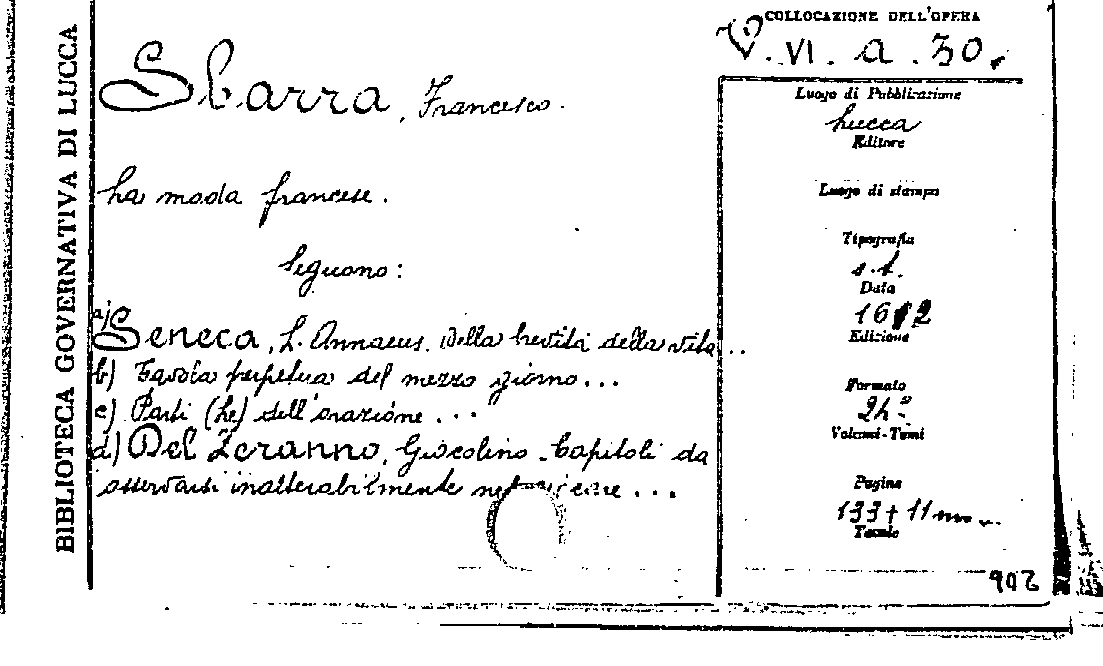 BIBLIOTECA GOVERNATIVA DI LUCCA
Sbarra, Francesco.
La moda francese.
Seguono:
a) Seneca, L. Annaeus. Della brevità della vita...
b) Tavola perpetua del mezzo giorno...
c) Parti (Le) dell'orazione...
d) Del Zeranno, Giocolino. Capitoli da
osservarsi inalterabilmente nel ...
COLLOCAZIONE DELL'OPERA
VI. a. 30.
Luogo di Pubblicazione
Lucca
Editore
Luogo di stampa
Tipografia
s.t.
Data
Edizione
Formato
24°
Volumi-Tomi
Pagine
133 + 11 nn.
Tavole